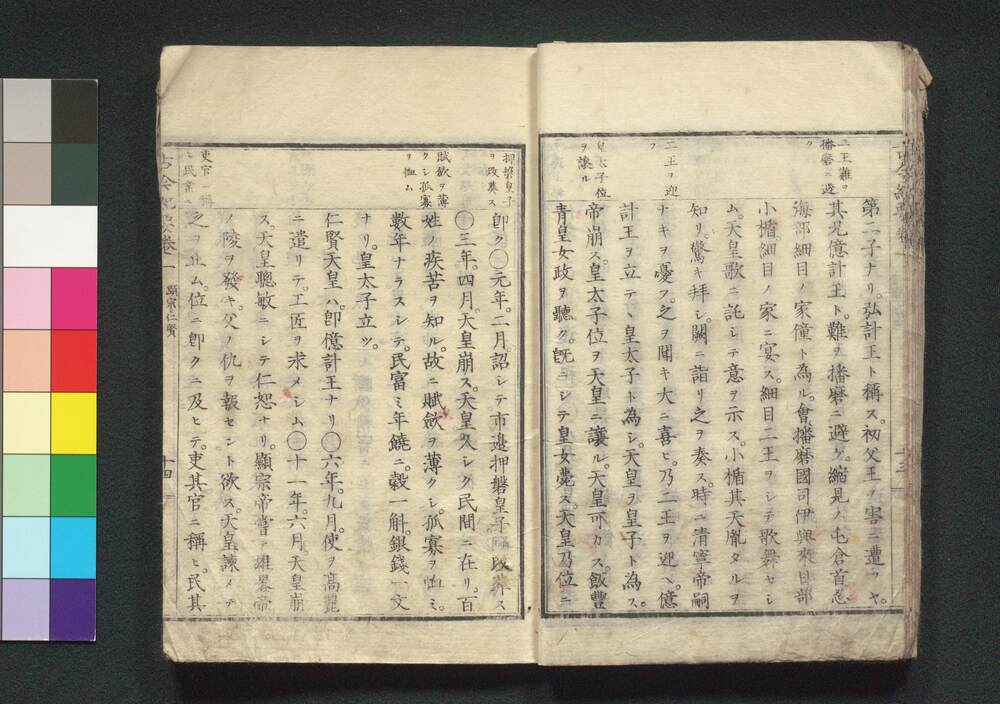 二王難ヲ
播磨ニ避
ク
二王ヲ迎
フ
皇太子位
ヲ讓ル
第二子ナリ。弘計王ト稱ス。初父王ノ害ニ遭フヤ。
其兄億計王ト。難ヲ播磨ニ避ケ。縮見ノ屯倉首忍
海部細目ノ家僮ト為ル。會播磨國司伊與來目部
小楯細目ノ家ニ宴ス。細目二王ヲシテ歌舞セシ
ム。天皇歌ニ託シテ意ヲ示ス。小楯其天胤タルヲ
知リ。驚キ拜シ。闕ニ詣リ之ヲ奏ス。時ニ清寧帝嗣
ナキヲ憂フ。之ヲ聞キ大ニ喜ヒ。乃二王ヲ迎ヘ。億
計王ヲ立テヽ皇太子ト為シ。天皇ヲ皇子ト為ス。
帝崩ス。皇太子位ヲ天皇ニ讓ル。天皇可カス。飯豐
青皇女政ヲ聽ク。既ニシテ皇女薨ス。天皇乃位ニ
押磐皇子
ヲ改葬ス
賦斂ヲ薄
クシ孤寡
ヲ恤ム
吏官ニ稱
ヒ民業ニ
卽ク〇元年。二月詔シテ市邊押磐皇子ヲ改葬ス
〇三年。四月。天皇崩ス。天皇久シク民間ニ在リ。百
姓ノ疾苦ヲ知ル。故ニ賦斂ヲ薄クシ。孤寡ヲ恤ミ。
數年ナラスシテ。民富ミ年饒ニ。穀一斛。銀錢一文
ナリ。皇太子立ツ。
仁賢天皇ハ。卽億計王ナリ〇六年。九月。使ヲ高麗
ニ遣リテ。工匠ヲ求メシム〇十一年。六月。天皇崩
ス。天皇聰敏ニシテ仁恕ナリ。顯宗帝嘗テ雄畧帝
ノ陵ヲ發キ。父ノ仇ヲ報セント欲ス。天皇諫メテ
之ヲ止ム。位ニ卽クニ及ヒテ。吏其官ニ稱ヒ。民其
卷一
顯宗 仁賢
十四